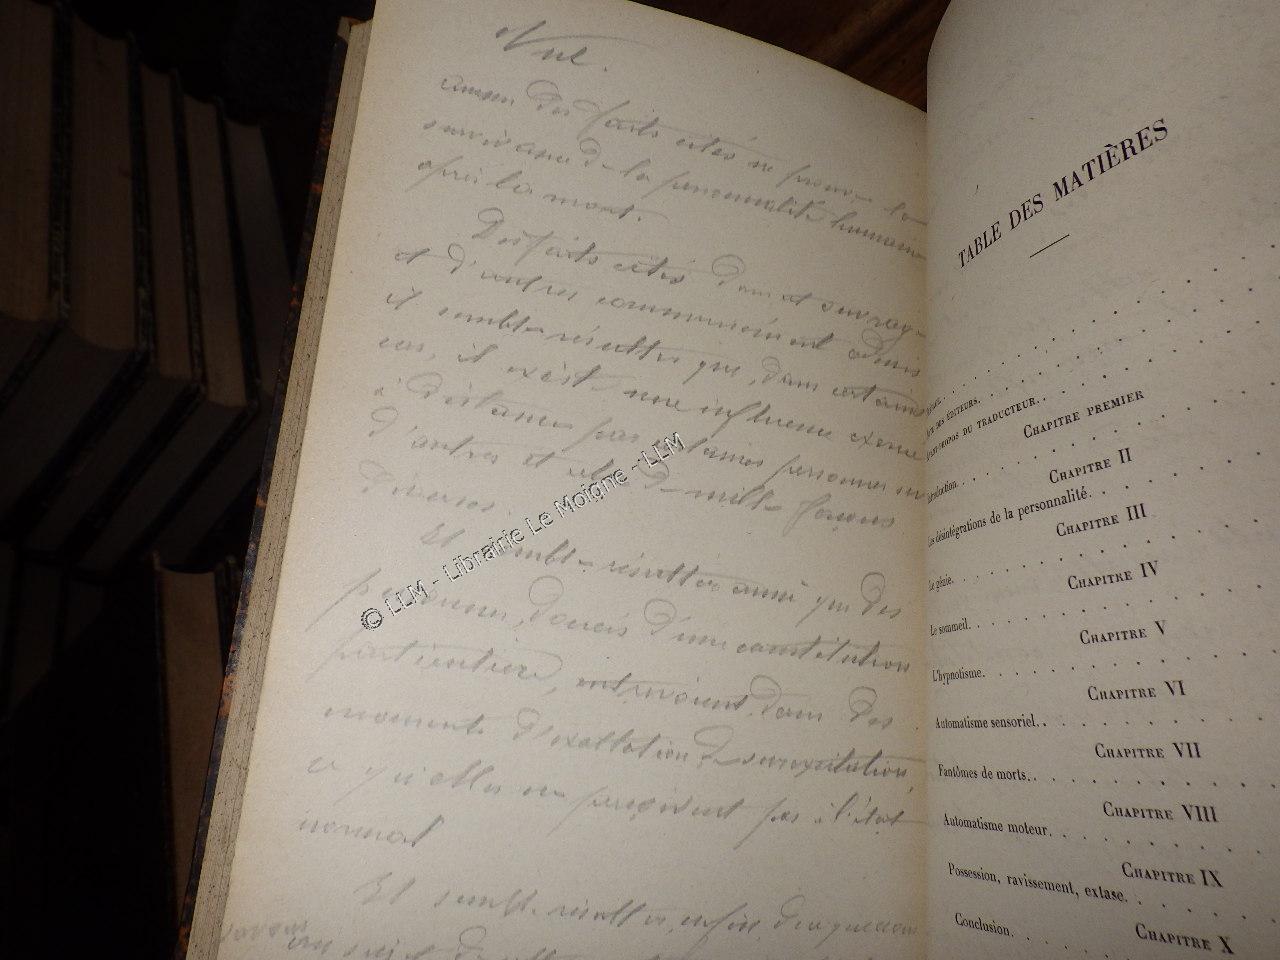 Nul.
aucun des faits cités ne prouve la
survivance de la personnalité humaine
après la mort.
Des faits cités dans cet ouvrage
et d'autres communément admis
il semble résulter que, dans certains
cas, il existe une influence exercée
à distance par certaines personnes sur
d'autres et cela de mille façons
diverses.
Il semble résulter aussi que des
personnes, douées d'une constitution
particulière, entrevoient dans des
moments d'exaltation, de surexcitation,
ce qu'elles ne perçoivent pas à l'état
normal
Il semble résulter, enfin,
© LLM - Librairie Le Moigne - LLM
TABLE DES MATIÈRES
DES ÉDITEURS.
AVANT-PROPOS DU TRADUCTEUR.
CHAPITRE PREMIER
Introduction.
CHAPITRE II
Les désintégrations de la personnalité.
CHAPITRE III
Le génie.
CHAPITRE IV
Le sommeil.
CHAPITRE V
L'hypnotisme.
CHAPITRE VI
Automatisme sensoriel.
CHAPITRE VII
Fantômes de morts.
CHAPITRE VIII
Automatisme moteur.
CHAPITRE IX
Possession, ravissement, extase.
CHAPITRE X
Conclusion.